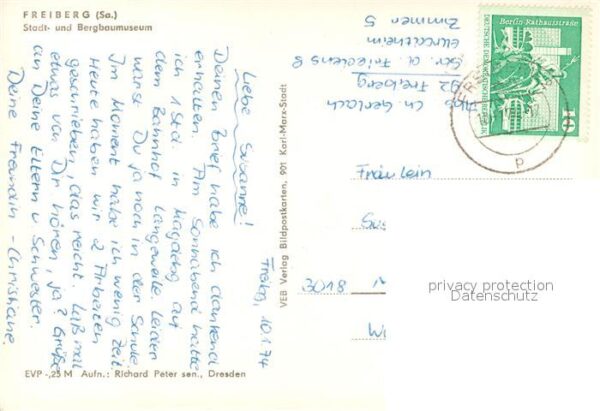 FREIBERG (Sa.)
Stadt- und Bergbaumuseum
Freitag, 10.1.74
Liebe Susanne!
Deinen Brief habe ich dankend
erhalten. Am Sonnabend hatte
ich 1 Std. in Magdebg auf
dem Bahnhof Langeweile. Leider
warst Du ja noch in der Schule.
Im Moment habe ich wenig Zeit.
Heute haben wir 2 Arbeiten
geschrieben, das reicht. Laß mal
etwas von Dir hören, ja? Grüße
an Deine Eltern u. Schwester.
Deine Freundin - Christiane.
EVP -,25 M Aufn.: Richard Peter sen., Dresden
VEB Verlag Bildpostkarten, 901 Karl-Marx-Stadt
Ch. Gerlach
92 Freiberg
Str. d. Friedens 8
Zimmer 5
Berlin · Rathausstraße
DEUTSCHE DEMOKRATISCHE REPUBLIK
10
Fräulein
3018
privacy protection
Datenschutz